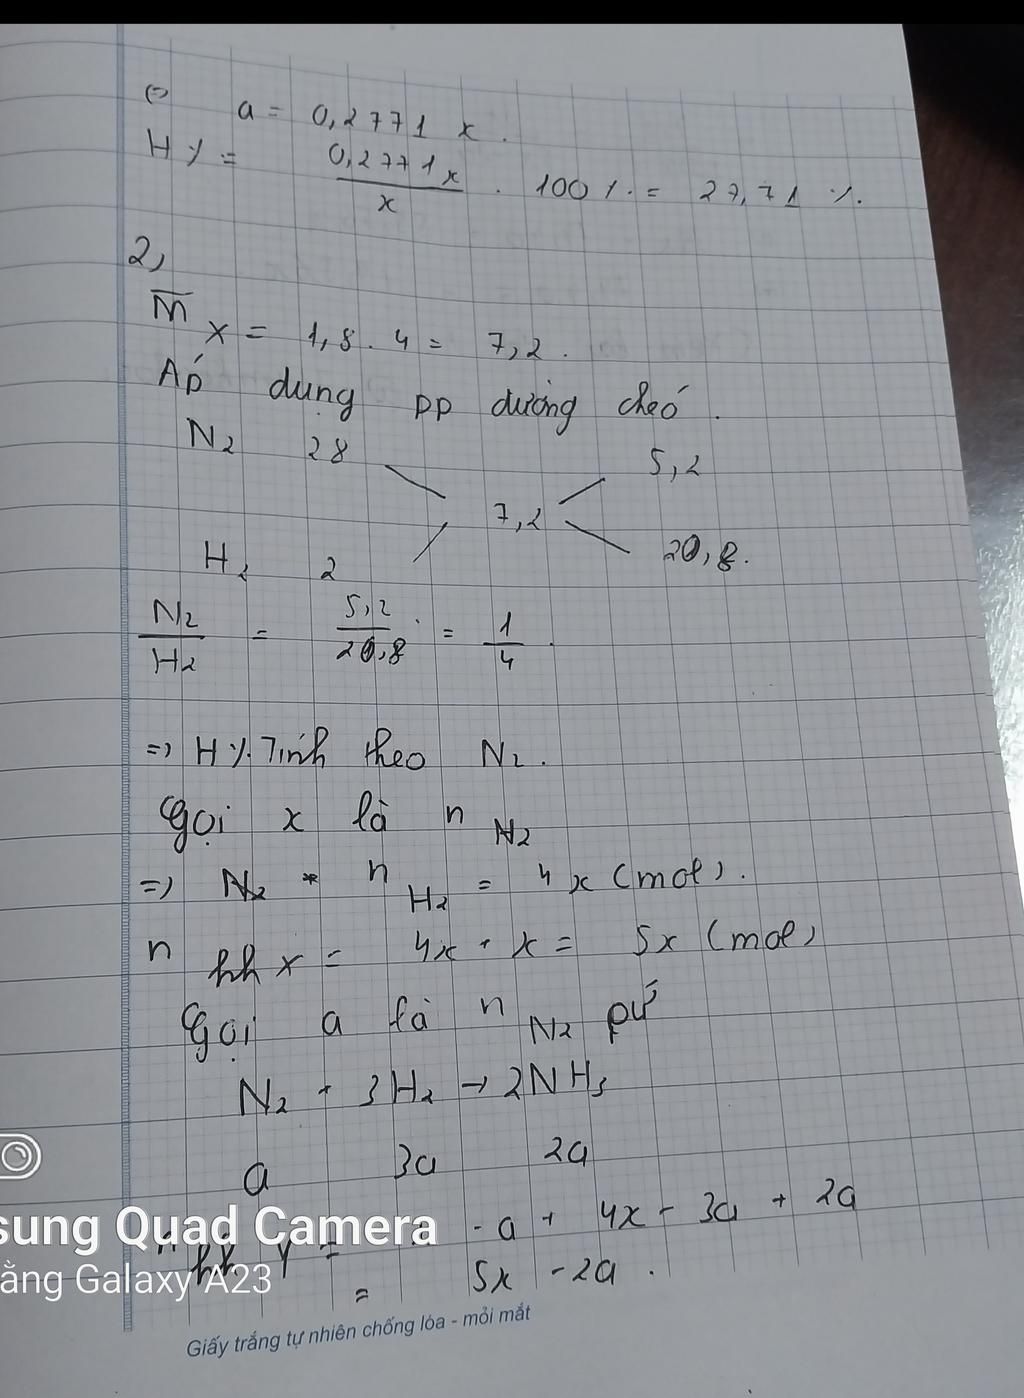 ⇔ a = 0,2771 x.
H% = 0,2771x / x . 100% = 27,71 %.
2,
M̅ X = 1,8 . 4 = 7,2.
Áp dụng pp đường chéo.
N2 28 5,2
7,2
H2 2 20,8.
N2 / H2 = 5,2 / 20,8 = 1 / 4.
=> H% Tính theo N2.
Gọi x là n N2
=> n H2 = 4x (mol).
n hh x = 4x + x = 5x (mol)
Gọi a là n N2 pứ
N2 + 3H2 → 2NH3
a 3a 2a
n hh Y = - a + 4x - 3a + 2a
= 5x - 2a.
sung Quad Camera
ằng Galaxy A23
Giấy trắng tự nhiên chống lóa - mỏi mắt